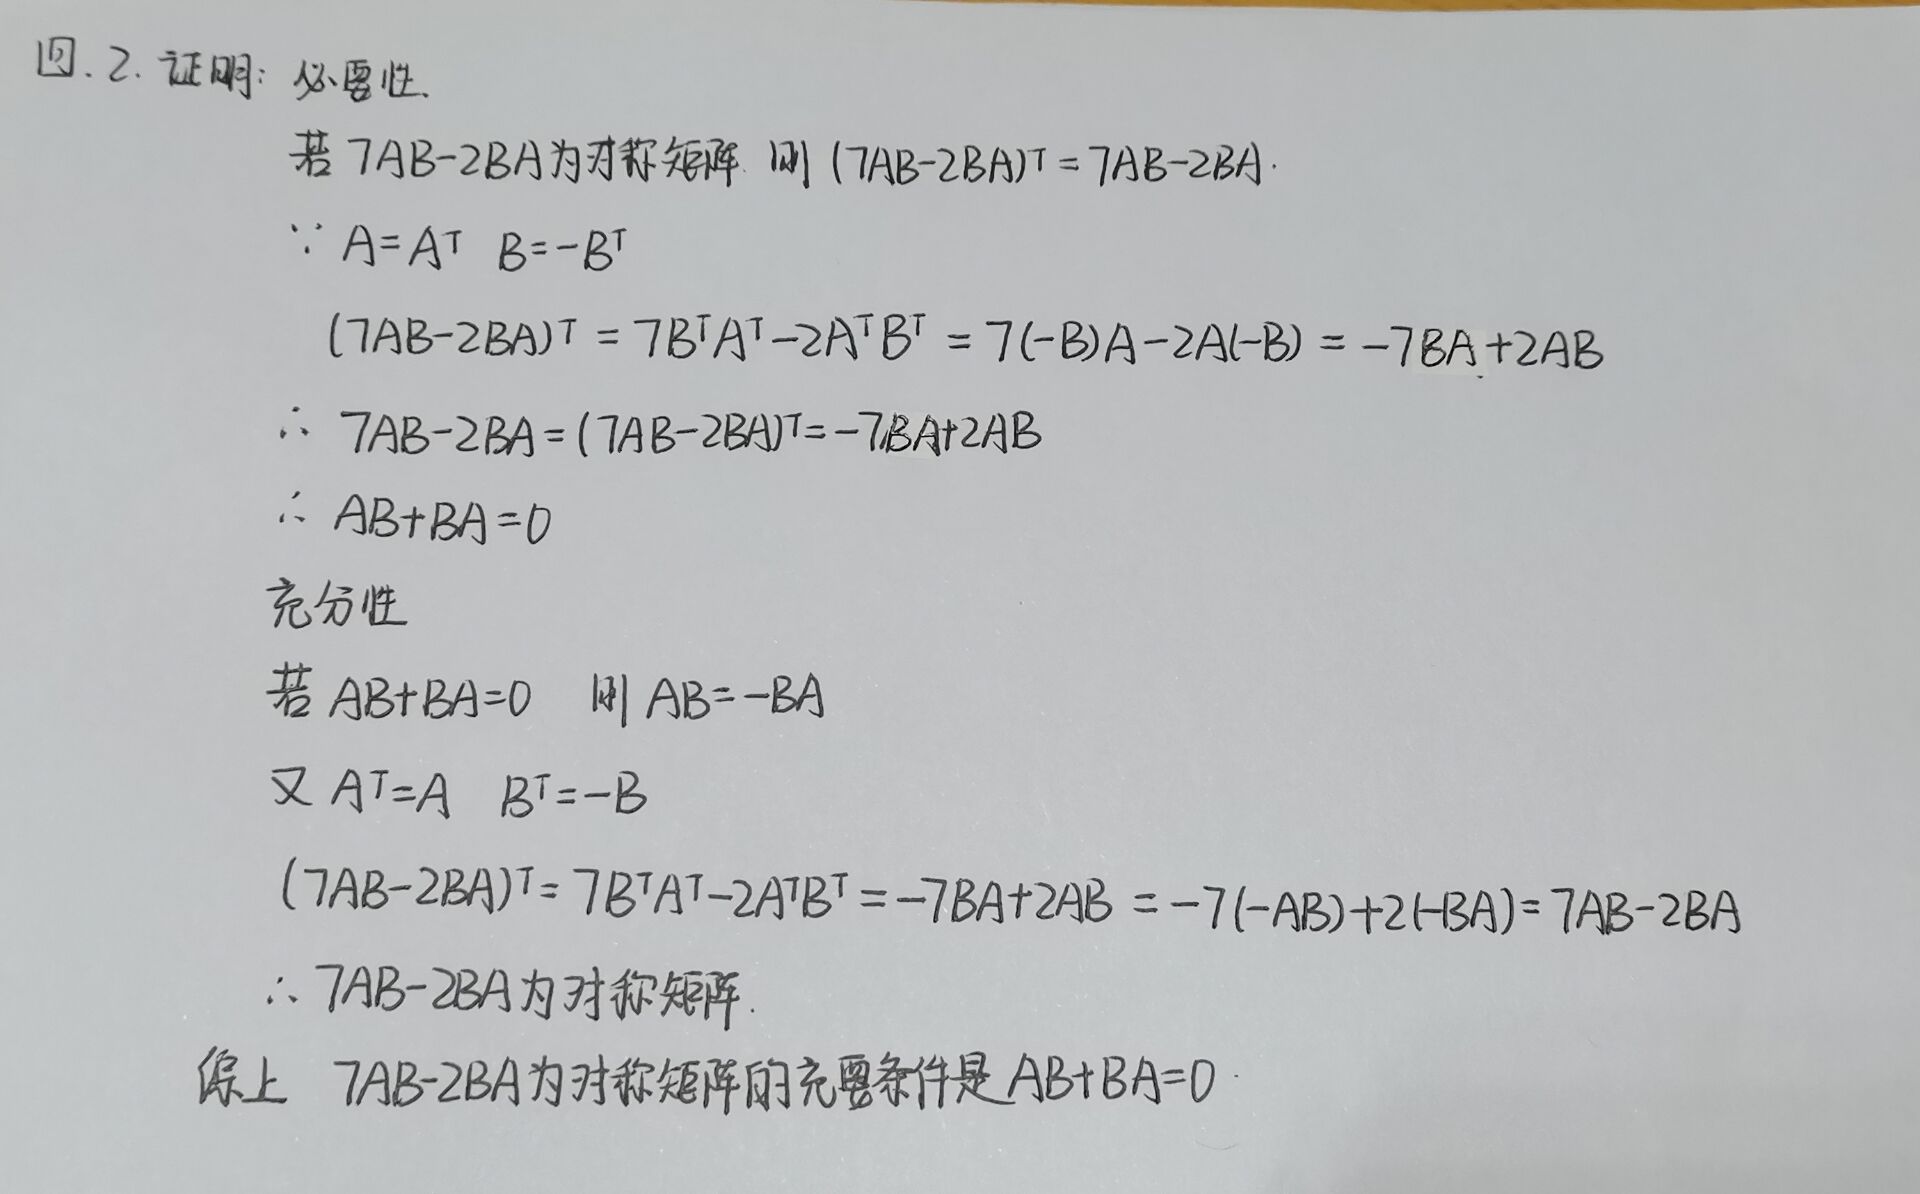 四.2.证明:必要性.
若7AB-2BA为对称矩阵.则(7AB-2BA)ᵀ=7AB-2BA.
∵ A=Aᵀ B=-Bᵀ
(7AB-2BA)ᵀ=7BᵀAᵀ-2AᵀBᵀ=7(-B)A-2A(-B)=-7BA+2AB
∴ 7AB-2BA=(7AB-2BA)ᵀ=-7BA+2AB
∴ AB+BA=0
充分性
若AB+BA=0 则AB=-BA
又Aᵀ=A Bᵀ=-B
(7AB-2BA)ᵀ=7BᵀAᵀ-2AᵀBᵀ=-7BA+2AB=-7(-AB)+2(-BA)=7AB-2BA
∴ 7AB-2BA为对称矩阵.
综上 7AB-2BA为对称矩阵的充要条件是AB+BA=0.